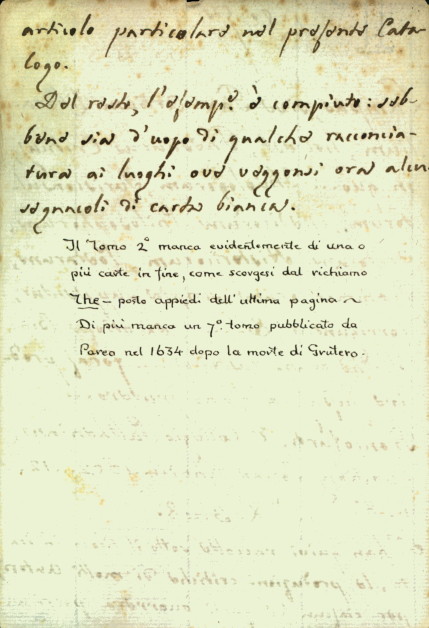 articolo particolare nel presente Cata-
logo.
Del resto, l'esemp.e è compiuto: seb-
bene sia d'uopo di qualche racconcia-
tura ai luoghi ove veggonsi ora alcun
segnacoli di carta bianca.
Il Tomo 2º manca evidentemente di una o
più carte in fine, come scorgesi dal richiamo
The – posto appiedi dell'ultima pagina ~
Di più manca un 7º tomo pubblicato da
Pareo nel 1634 dopo la morte di Grutero.